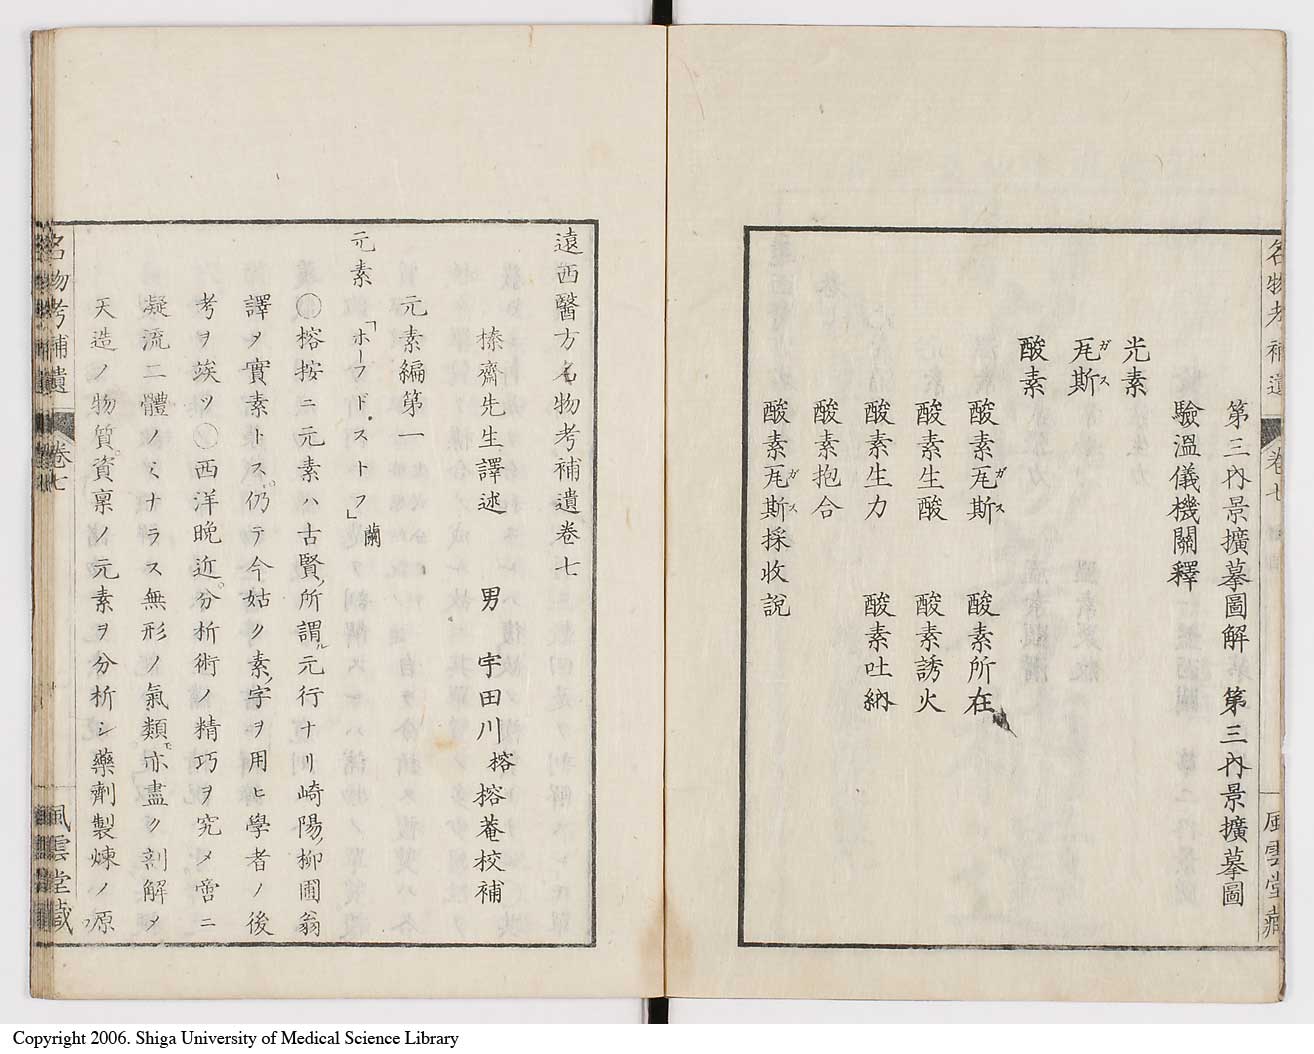 名物考補遺 卷七 風雲堂藏
第三內景擴摹圖解 第三內景擴摹圖
驗溫儀機關釋
光素
瓦斯 ガス
酸素
酸素瓦斯 ガス 酸素所在
酸素生酸 酸素誘火
酸素生力 酸素吐納
酸素抱合
酸素瓦斯採收説 ガス
遠西醫方名物考補遺卷七
榛齋先生譯述 男 宇田川榕 榕菴校補
元素編第一
元素 「ホーフド、ストフ」蘭
榕按ニ元素ハ古賢ノ所謂ル元行ナリ崎陽ノ柳圃翁
譯メ實素トス仍テ今姑ク素ノ字ヲ用ヒ學者ノ後
考ヲ竢ツ 西洋晩近分析術ノ精巧ヲ究メ啻ニ
凝流二體ノミナラス無形ノ氣類モ亦盡ク剖解メ
天造ノ物質資稟ノ元素ヲ分析シ藥劑製煉ノ原
名物考補遺 卷七 風雲堂藏
Copyright 2006. Shiga University of Medical Science Library